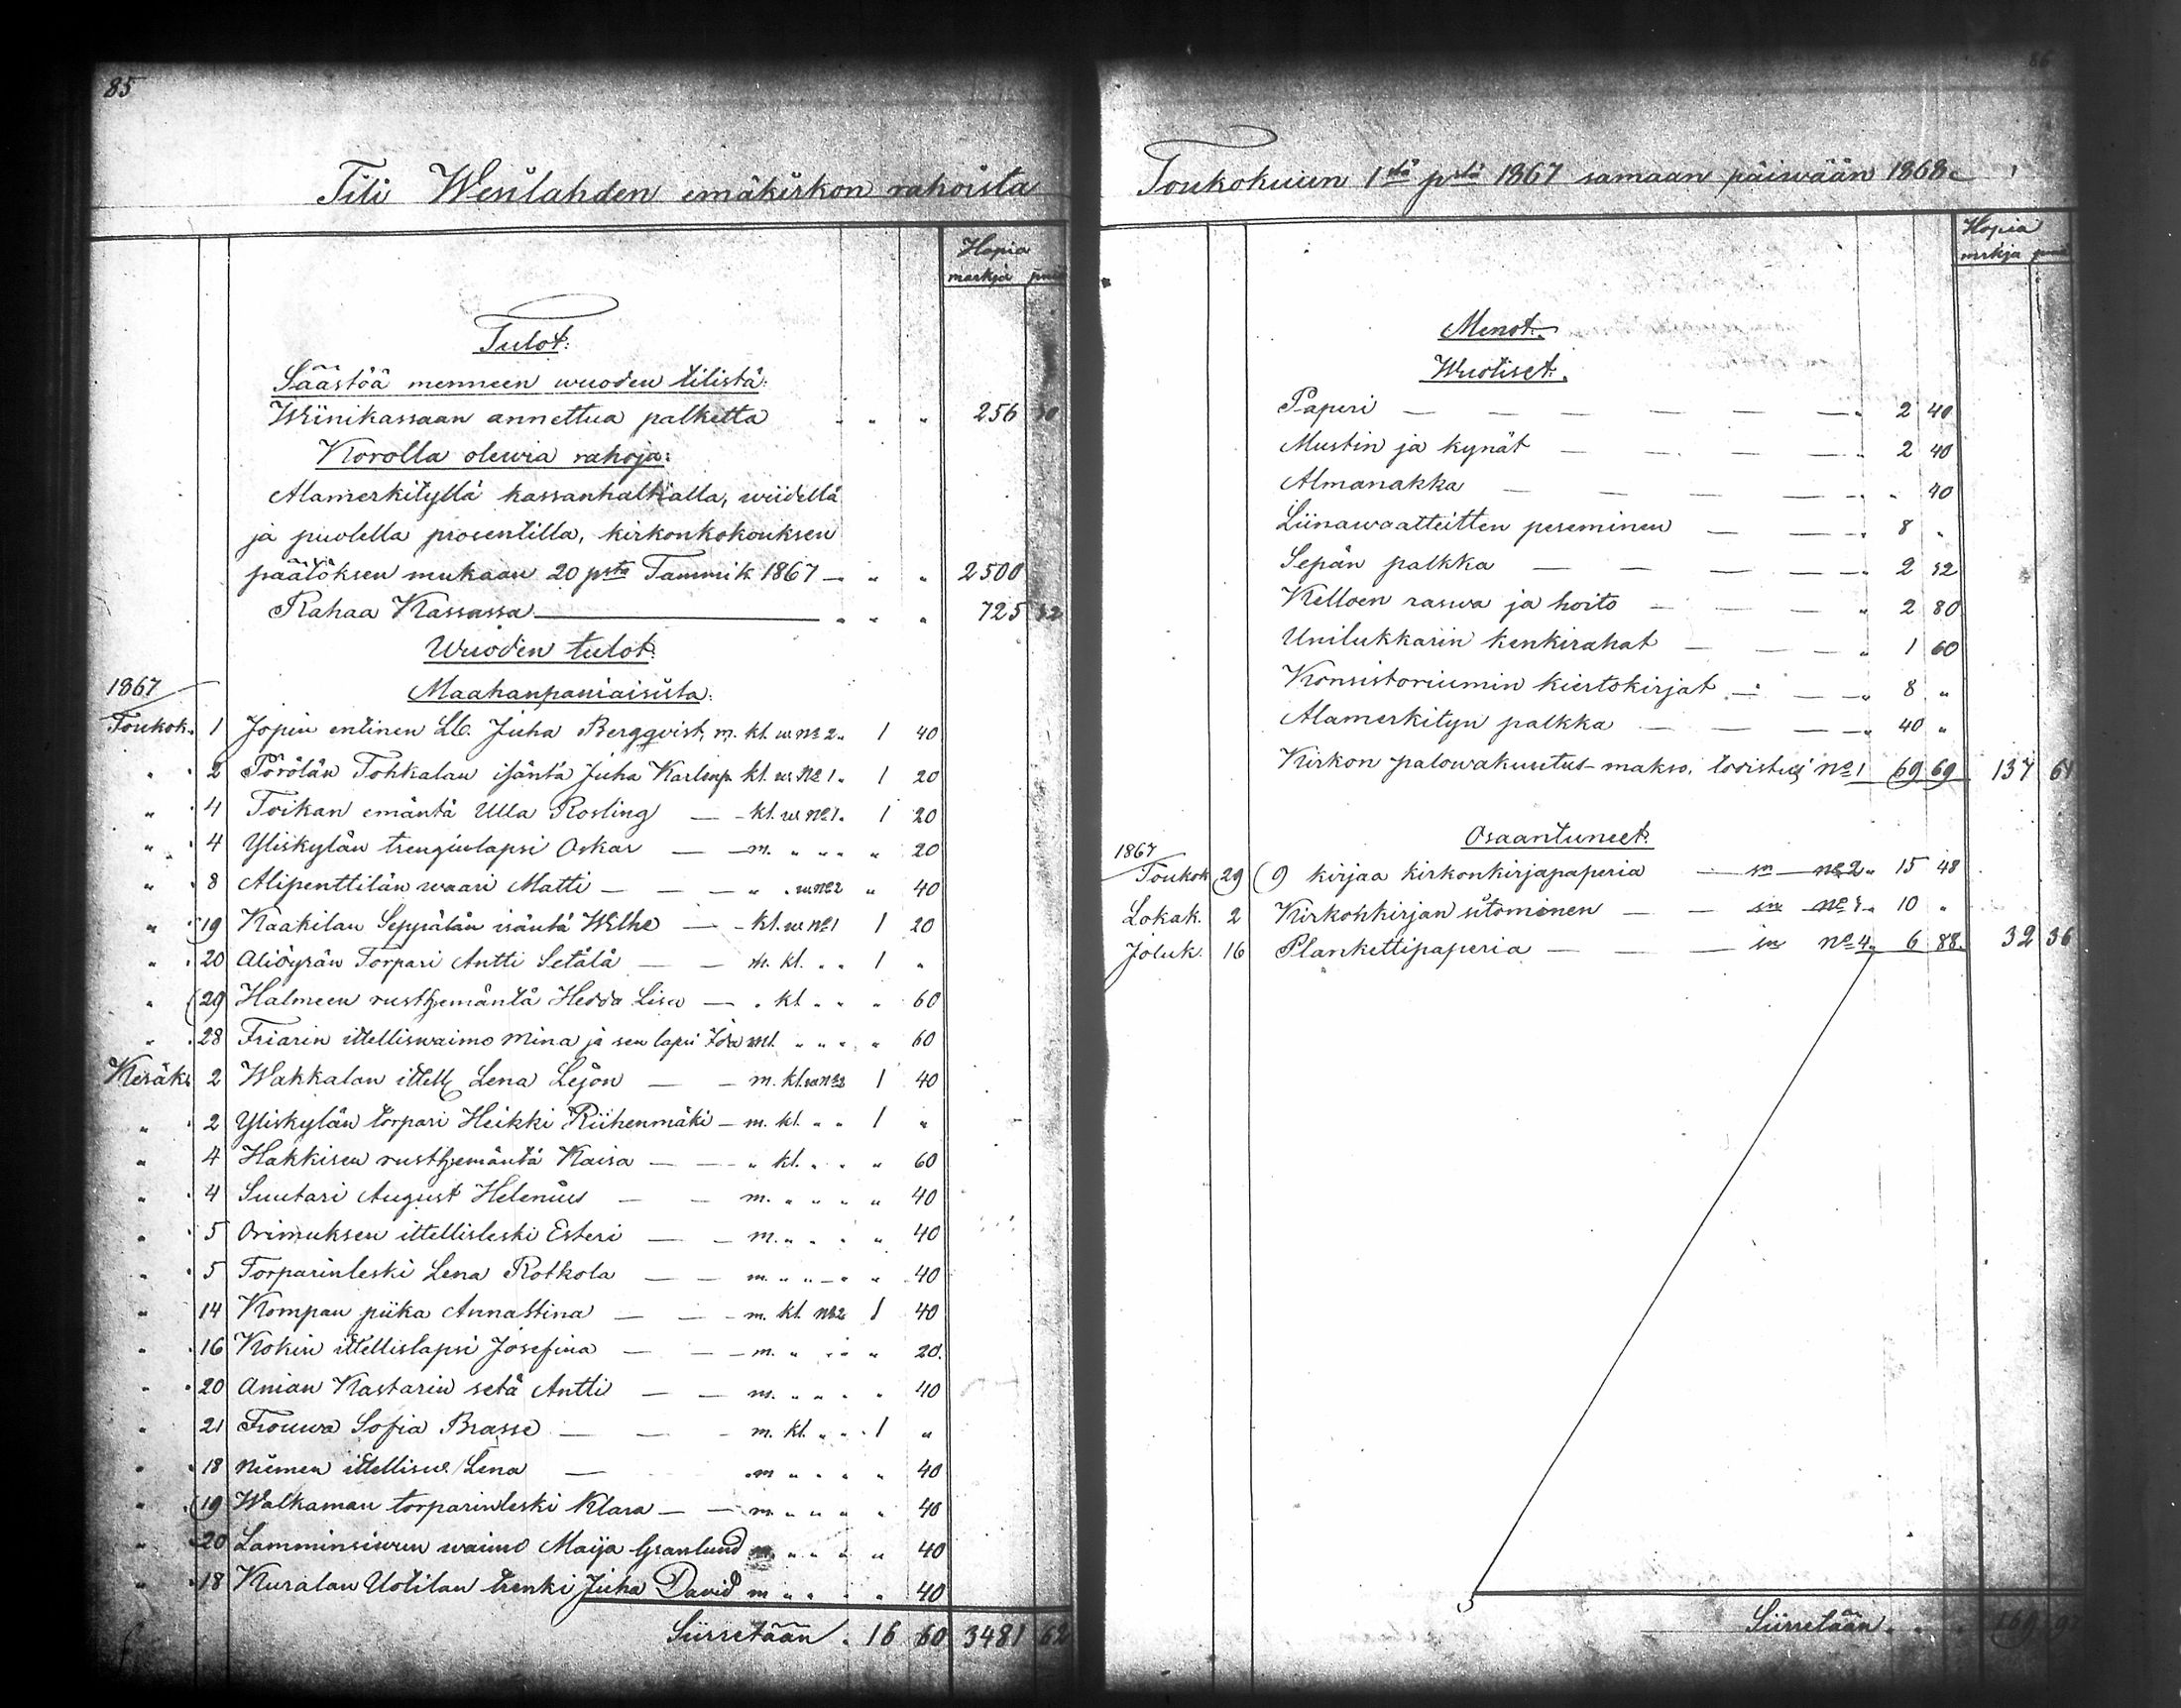 85
Tili Wesilahden emäkirkon rahoista
Hopia
markja
Tulot:
Säästöä menneen wuoden tilistä:
Wiinikassaan annettua palketta " " " 256
Korolla olewia rahoja:
Alamerkityllä kassanhaltialla, wiidellä
ja puolella prosentilla, kirkonkokouksen
päätöksen mukaan 20 psta Tammik. 1867 — " " 2500
Rahaa Kassassa — " " " 725 32
Wuoden tulot:
1867 Maahanpaniaisista:
Toukok. 1 Jopin entinen Lb. Juha Bergqvist, m. kl. w. No 2 " 1 40
" " 2 Pörölän Tohkalan isäntä Juha Karlinp. kl. w. No 1 " 1 20
" " 4 Toikan emäntä Ulla Rosling — - kl. w. No 1. 1 20
" " 4 Yliskylän trenginlapsi Oskar — — m. " " " " 20
" " 8 Alipenttilän waari Matti — — — " " w. No 2 " 40
" " 19 Kaakilan Seppälän isäntä Wilhe — - kl. w. No 1 1 20
" " 20 Aliöyrän Torpari Antti Setälä — — m. kl. " " 1 "
" 29 Halmeen rusth. emäntä Hedda Lisa — " kl. " " " 60
" " 28 Friarin itelliswaimo Mina ja sen lapsi Ida ml. " " " " 60
Kesäk. 2 Wakkalan itell. Lena Lejon — — m. kl. w. No 2 1 40
" " 2 Yliskylän torpari Heikki Riihenmäki — m. kl. " " 1 "
" 4 Hakkisen rusth. emäntä Kaisa — — " kl. " " " 60
" " 4 Suutari August Helenius — — m. " " " " 40
" " 5 Orimuksen itellisleski Esteri — — m. " " " " 40
" " 5 Torparinleski Lena Rotkola — — m. " " " " 40
" 14 Kompan piika Annastina — — m. kl. No 2 1 40
" " 16 Kokin itellislapsi Josefina — — m. " " " " 20.
" " 20 Anian Kastarin setä Antti — — m. " " " " 40
" 21 Frouwa Sofia Brasse — — - m. kl. " " 1 "
" " 18 Niemen itellisw. Lena — " m " " " " 40
" " 19 Walkaman torparinleski Klara — — m. " " " " 40
" " 20 Lamminsiwun waimo Maija Granlund m. " " " " 40
" " 18 Kuralan Uotilan trenki Juha David m " " " " 40
Siirretään . 16 60 3481 62
86
Toukokuun 1stä pstä 1867 samaan päiwään 1868.
Hopia
mrkja
Menot:
Wuotiset:
Paperi — — — — — — " 2 40
Mustin ja kynät — — — — " 2 40
Almanakka — — — — " " 40
Liinawaatteitten peseminen — — — " 8 "
Sepän palkka — — — — — " 2 52
Kelloen raswa ja hoito — — — — " 2 80
Unilukkarin kenkirahat — — — — " 1 60
Konsistoriumin kiertokirjat — — — " 8 "
Alamerkityn palkka — — — — " 40 "
Kirkon palowakuutus-makso, todistus No 1 69 69 137
Osaantuneet:
1867
Toukok 29 9 kirjaa kirkonkirjapaperia — sn — No 2 " 15 48
Lokak. 2 Kirkonkirjan sitominen — — sn No 3 " 10 "
Joluk. 16 Plankettipaperia — — — sn No 4 " 6 88. 32 36
Siirretään . . .